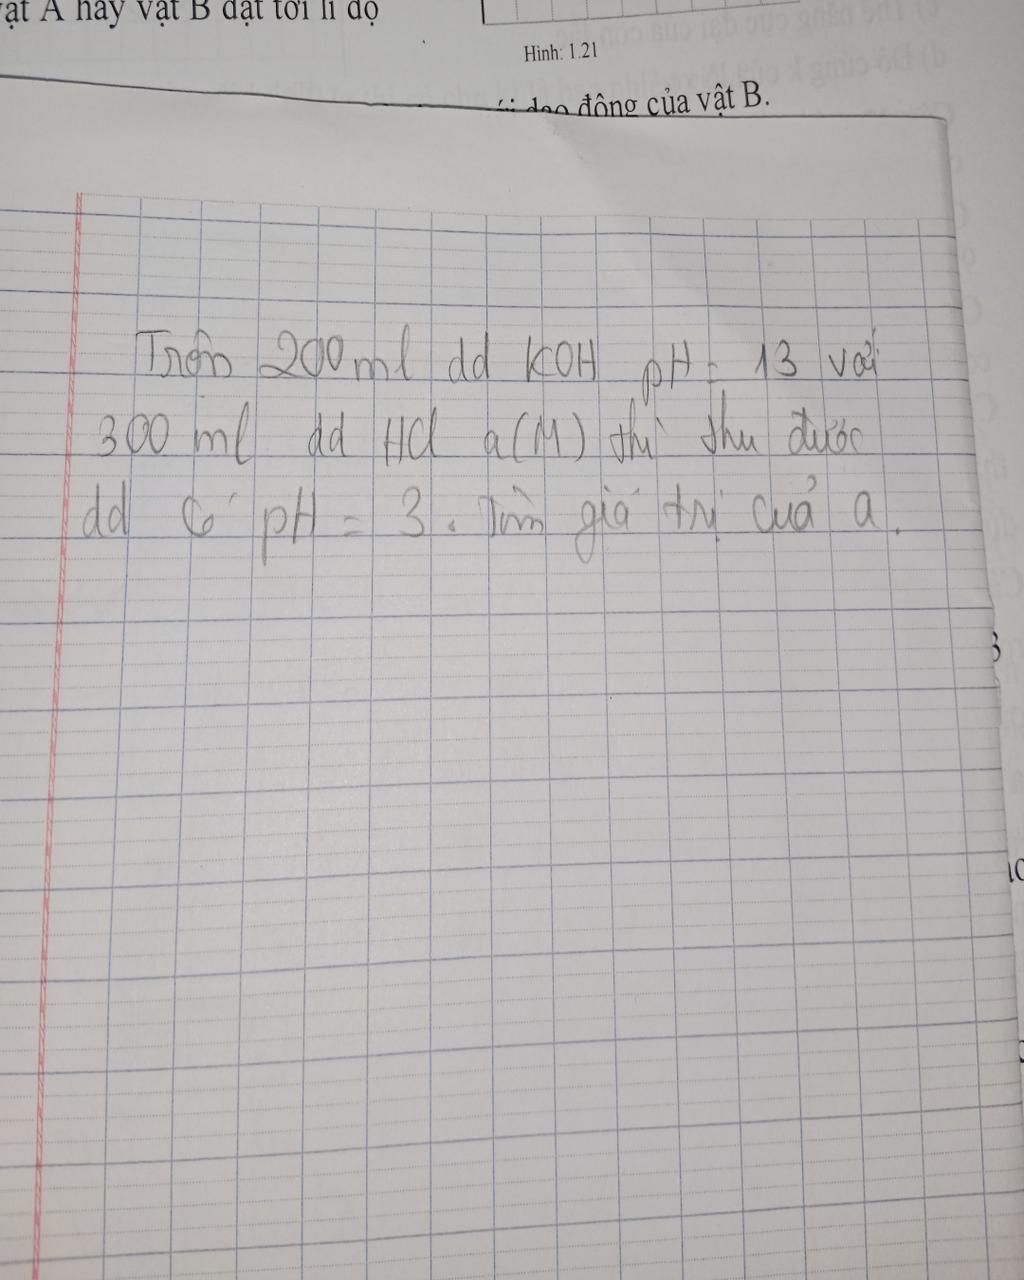 vật A hay vật B đạt tới li độ
Hình: 1.21
dao động của vật B.
Trộn 200ml dd KOH pH = 13 với
300 ml dd HCl a(M) thì thu được
dd có pH = 3. Tìm giá trị cuả a.
3
10